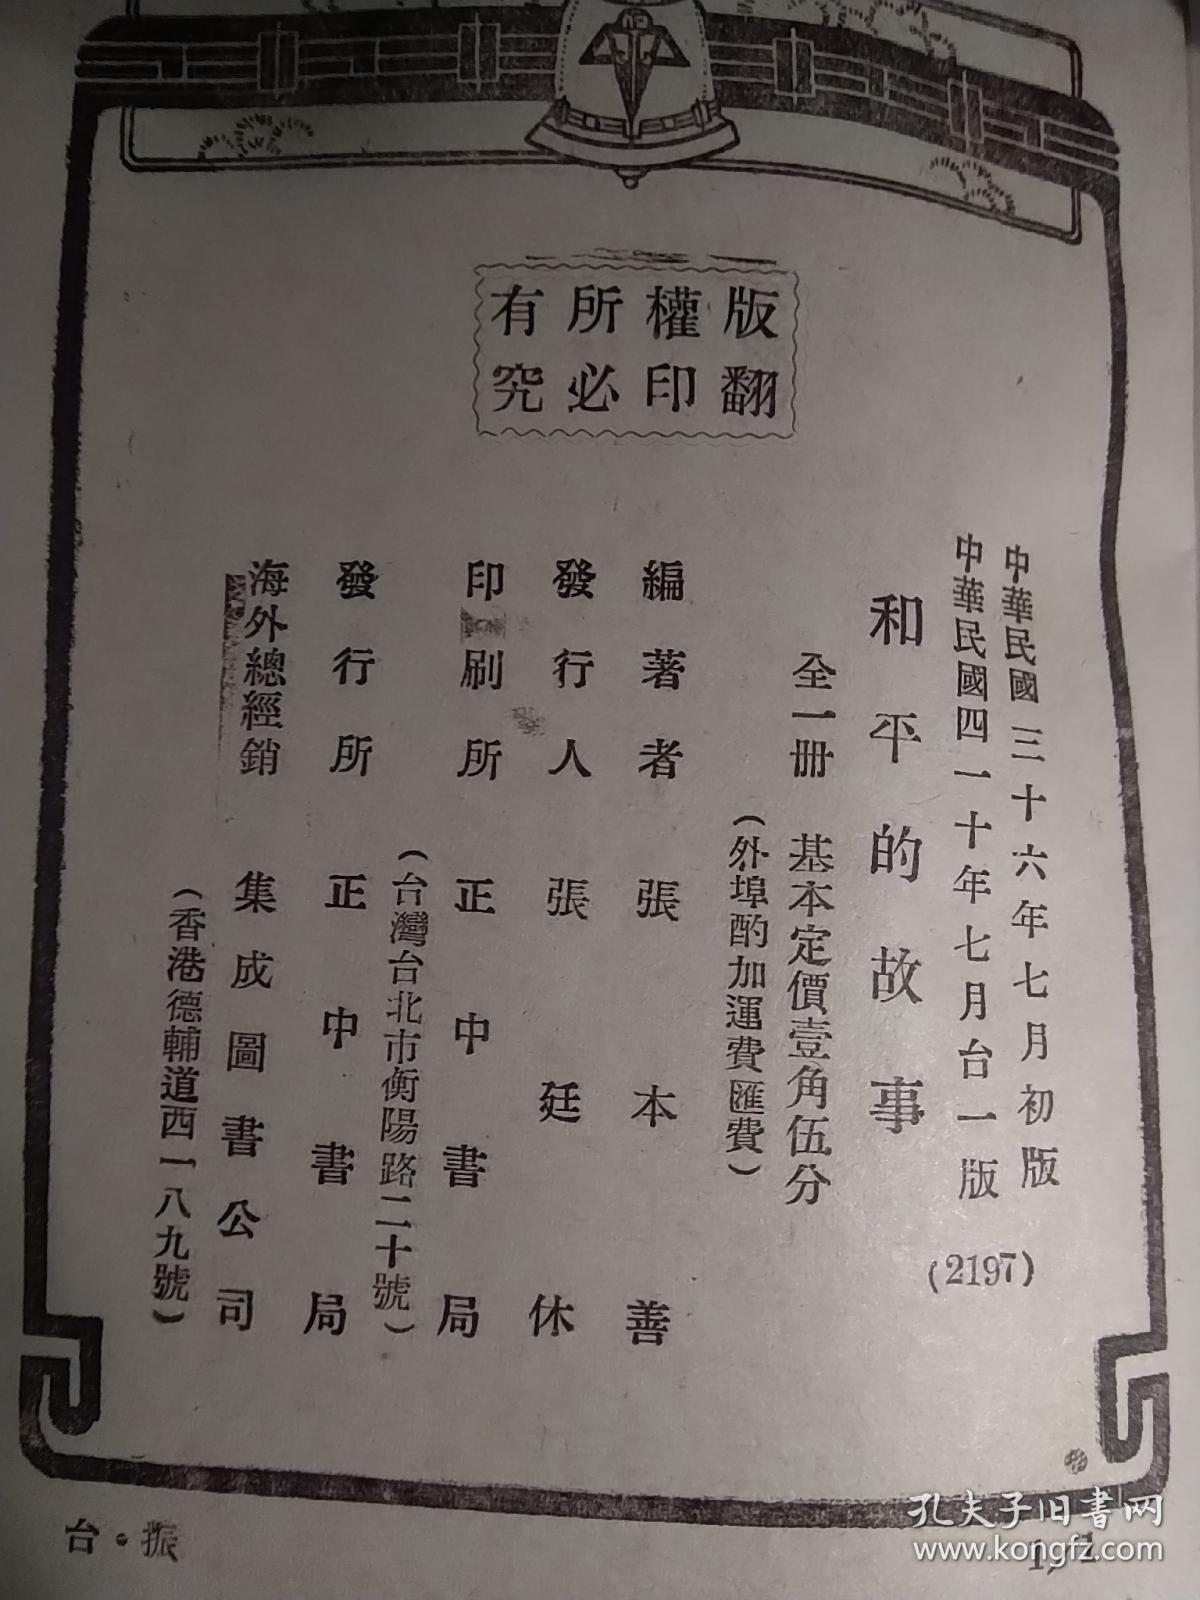 版權所有
翻印必究
中華民國三十六年七月初版
中華民國四一十年七月台一版
(2197)
和平的故事
全一冊 基本定價壹角伍分
(外埠酌加運費匯費)
編著者 張本善
發行人 張廷休
印刷所 正中書局
(台灣台北市衡陽路二十號)
發行所 正中書局
海外總經銷 集成圖書公司
(香港德輔道西一八九號)
台·振
孔夫子旧书网
www.kongfz.com